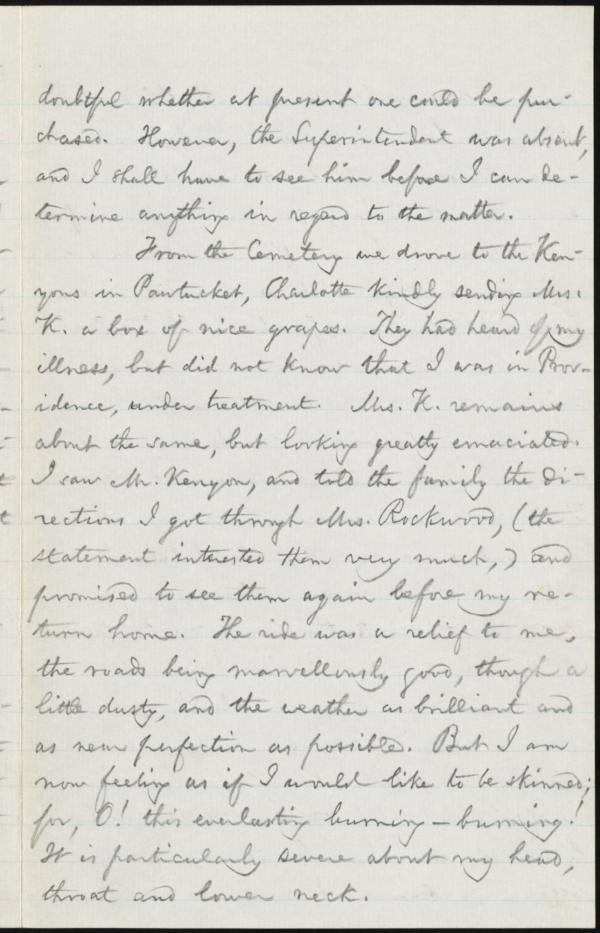 doubtful whether at present one could be pur-
chased. However, the Superintendent was absent,
and I shall have to see him before I can de-
termine anything in regard to the matter.
From the Cemetery we drove to the Ken-
yons in Pawtucket, Charlotte kindly sending Mrs.
K. a box of nice grapes. They had heard of my
illness, but did not know that I was in Prov-
idence, under treatment. Mrs. K. remains
about the same, but looking greatly emaciated.
I saw Mr. Kenyon, and told the family the di-
rections I got through Mrs. Rockwood, (the
statement interested them very much,) and
promised to see them again before my re-
turn home. The ride was a relief to me,
the roads being marvellously good, though a
little dusty, and the weather as brilliant and
as near perfection as possible. But I am
now feeling as if I would like to be skinned;
for, O! this everlasting burning — burning!
It is particularly severe about my head,
throat and lower neck.